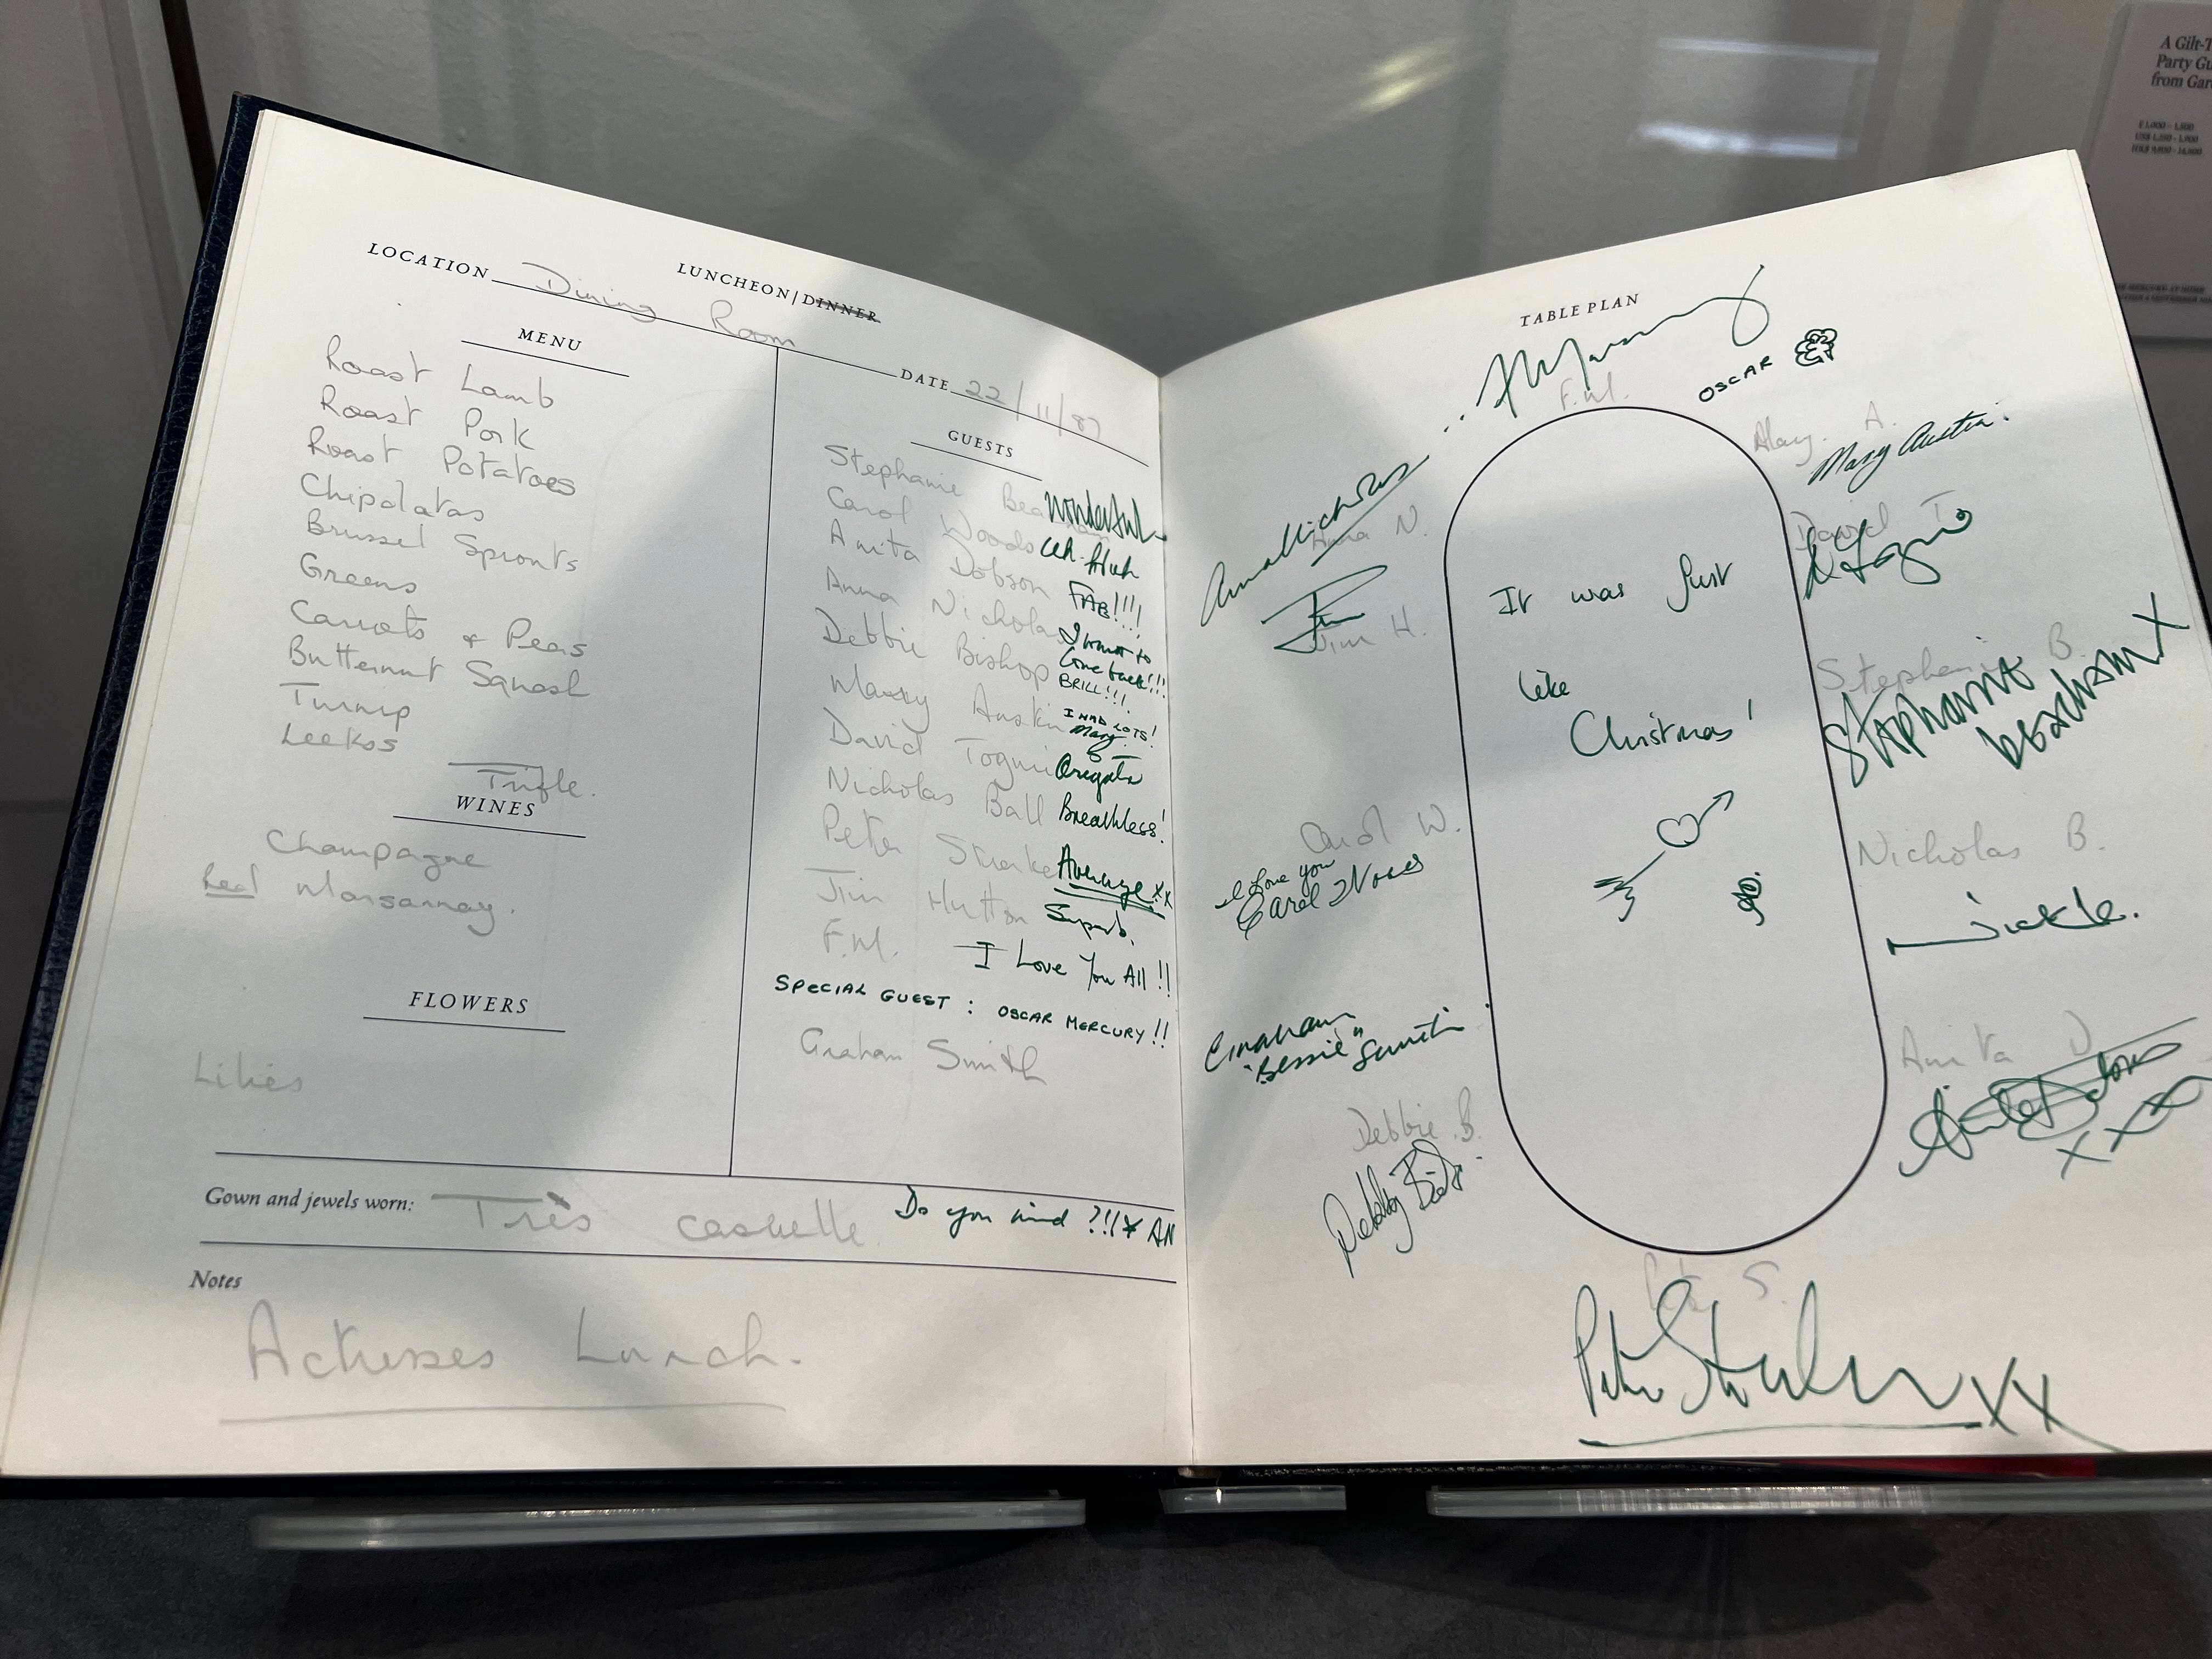 LOCATION Dining Room
LUNCHEON|DINNER
DATE 22/11/87
MENU
Roast Lamb
Roast Pork
Roast Potatoes
Chipolatas
Brussel Sprouts
Greens
Carrots + Peas
Butternut Squash
Turnip
Leekos
Trifle.
WINES
Champagne
Red Marsannay.
FLOWERS
Lilies
GUESTS
Stephanie Beacham Wonderful
Carol Woods
Anita Dobson FAB!!!!
Anna Nicholas I want to
come back!!!
Debbie Bishop BRILL!!!
Mary Austin I HAD LOTS!
Mary
David Togni
Nicholas Ball Breathless!
Peter Straker Average xx
Jim Hutton Superb.
F.M. I Love You All !!
SPECIAL GUEST : OSCAR MERCURY !!
Graham Smith
Gown and jewels worn: Très casuelle Do you mind ?!! x AN
Notes
Actresses Lunch.
TABLE PLAN
F.M.
OSCAR
Mary. A.
Mary Austin.
Anna Nicholas
Anna N.
David T.
Jim
Jim H.
It was just
like
Christmas!
Stephanie B.
Stephanie
beacham X
Carol W.
I love you
Carol Woods
Nicholas B.
Graham
"Bessie" Smith
Anita D
Anita Dobson
XXX
Debbie B.
Debby Bish
Peter S.
Peter Straker XX
A Gilt-T
Party Gu
from Gar
£ 1,000 - 1,500